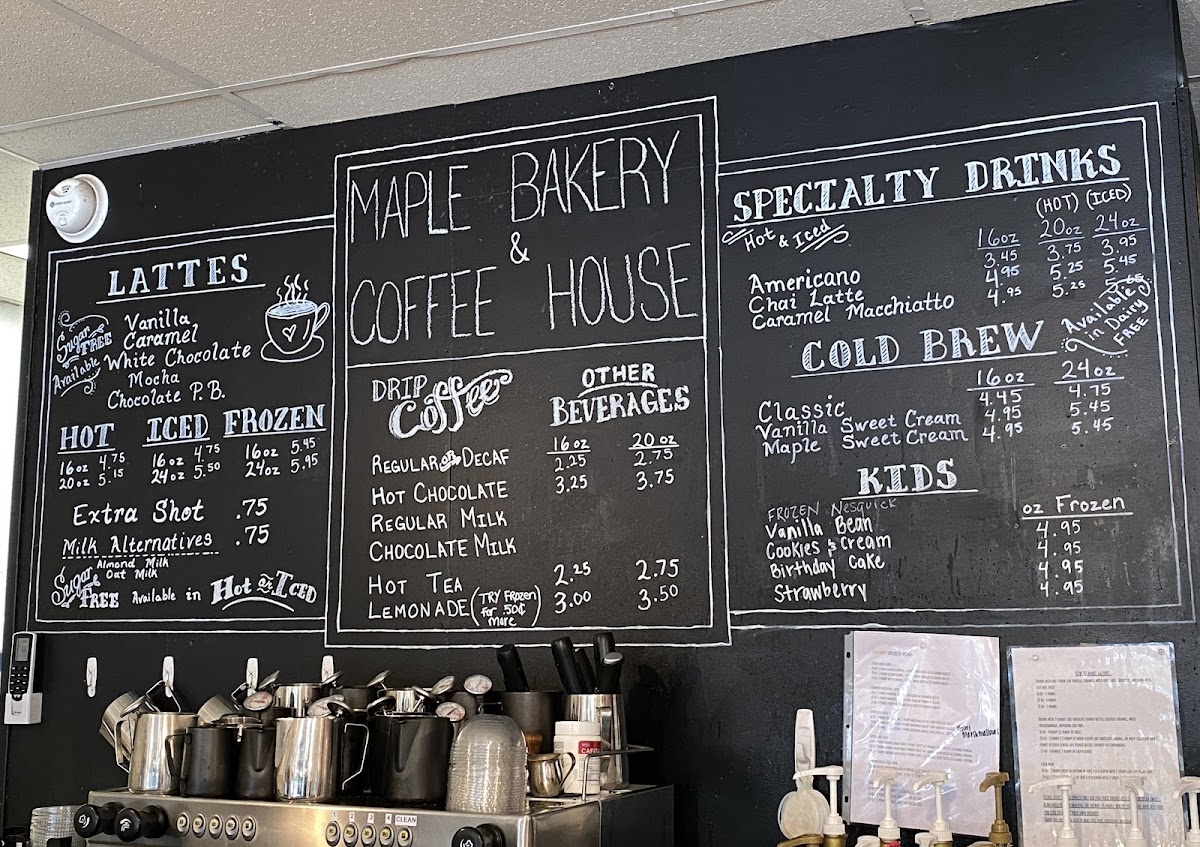 MAPLE BAKERY
&
COFFEE HOUSE
LATTES
Sugar FREE Available
Vanilla
Caramel
White Chocolate
Mocha
Chocolate P.B.
HOT ICED FROZEN
16oz 4.75 16oz 4.75 16oz 5.45
20oz 5.15 24oz 5.50 24oz 5.95
Extra Shot .75
Milk Alternatives .75
Almond Milk
Oat Milk
Sugar FREE Available in Hot or Iced
DRIP Coffee
OTHER BEVERAGES
16oz 20oz
REGULAR or DECAF 2.25 2.75
HOT CHOCOLATE 3.25 3.75
REGULAR MILK
CHOCOLATE MILK
HOT TEA 2.25 2.75
LEMONADE (TRY FROZEN for .50¢ more) 3.00 3.50
SPECIALTY DRINKS
Hot & Iced
(HOT) (ICED)
16oz 20oz 24oz
Americano 3.45 3.75 3.95
Chai Latte 4.95 5.25 5.45
Caramel Macchiatto 4.95 5.25 5.65
Available in Dairy FREE
COLD BREW
16oz 24oz
Classic 4.45 4.75
Vanilla Sweet Cream 4.95 5.45
Maple Sweet Cream 4.95 5.45
KIDS
oz Frozen
FROZEN Nesquick
Vanilla Bean 4.95
Cookies & Cream 4.95
Birthday Cake 4.95
Strawberry 4.95
1 2 3 4 CLEAN